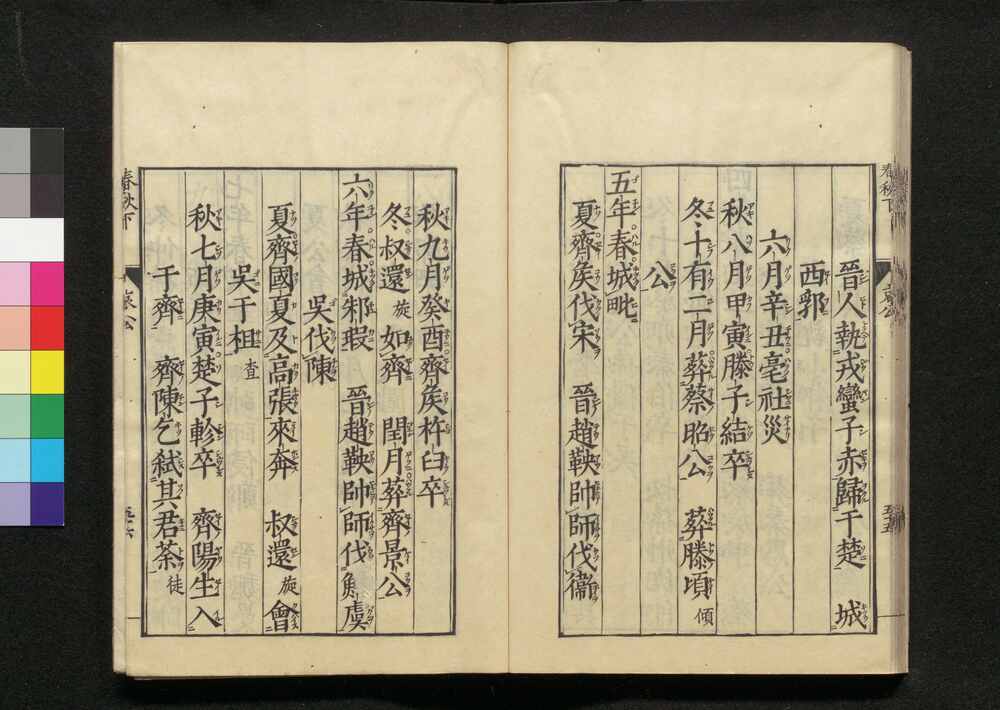 春秋下
哀公
五十五
晉人執戎蠻子赤歸于楚　城
西郛
六月辛丑亳社災
秋八月甲寅滕子結卒
冬十有二月葬蔡昭公　葬滕頃傾
公
五年春城毗
夏齊矦伐宋　晉趙鞅帥師伐衞
秋九月癸酉齊矦杵臼卒
冬叔還旋如齊　閏月葬齊景公
六年春城邾瑕　晉趙鞅帥師伐鮮虞
吳伐陳
夏齊國夏及高張來奔　叔還旋會
吳于柤查
秋七月庚寅楚子軫卒　齊陽生入
于齊　齊陳乞弒其君荼徒
春秋下
哀公
五十六